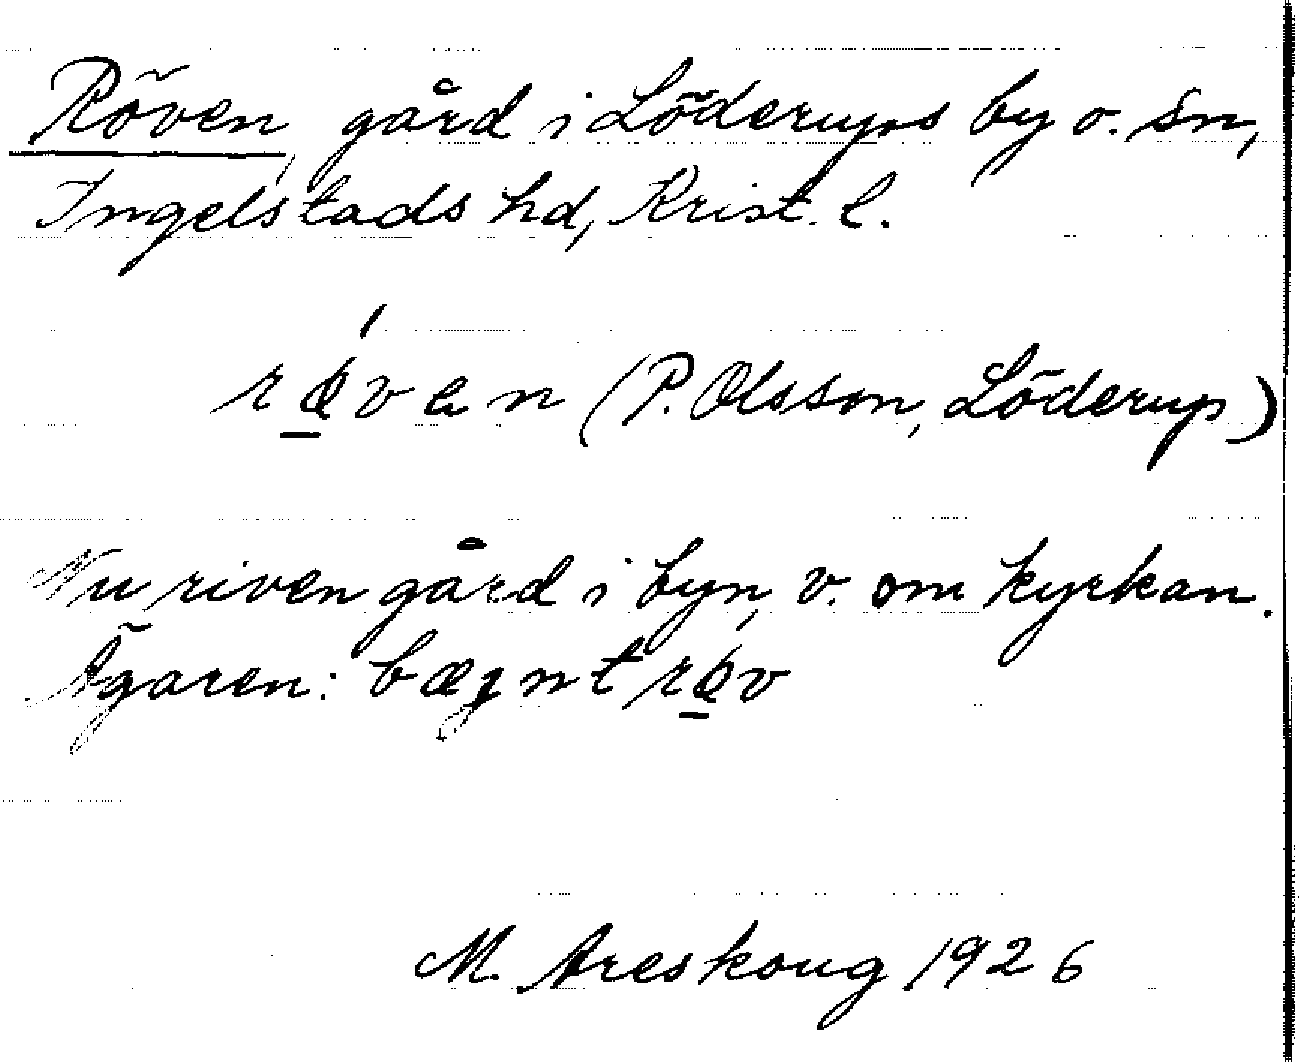 Röven, gård i Löderups by o. sn,
Ingelstads hd, Krist. l.
rǿ̱ven (P. Olsson, Löderup)
Nu riven gård i byn, v. om kyrkan.
Ägaren: bæŋnt rø̱v
M. Areskoug 1926